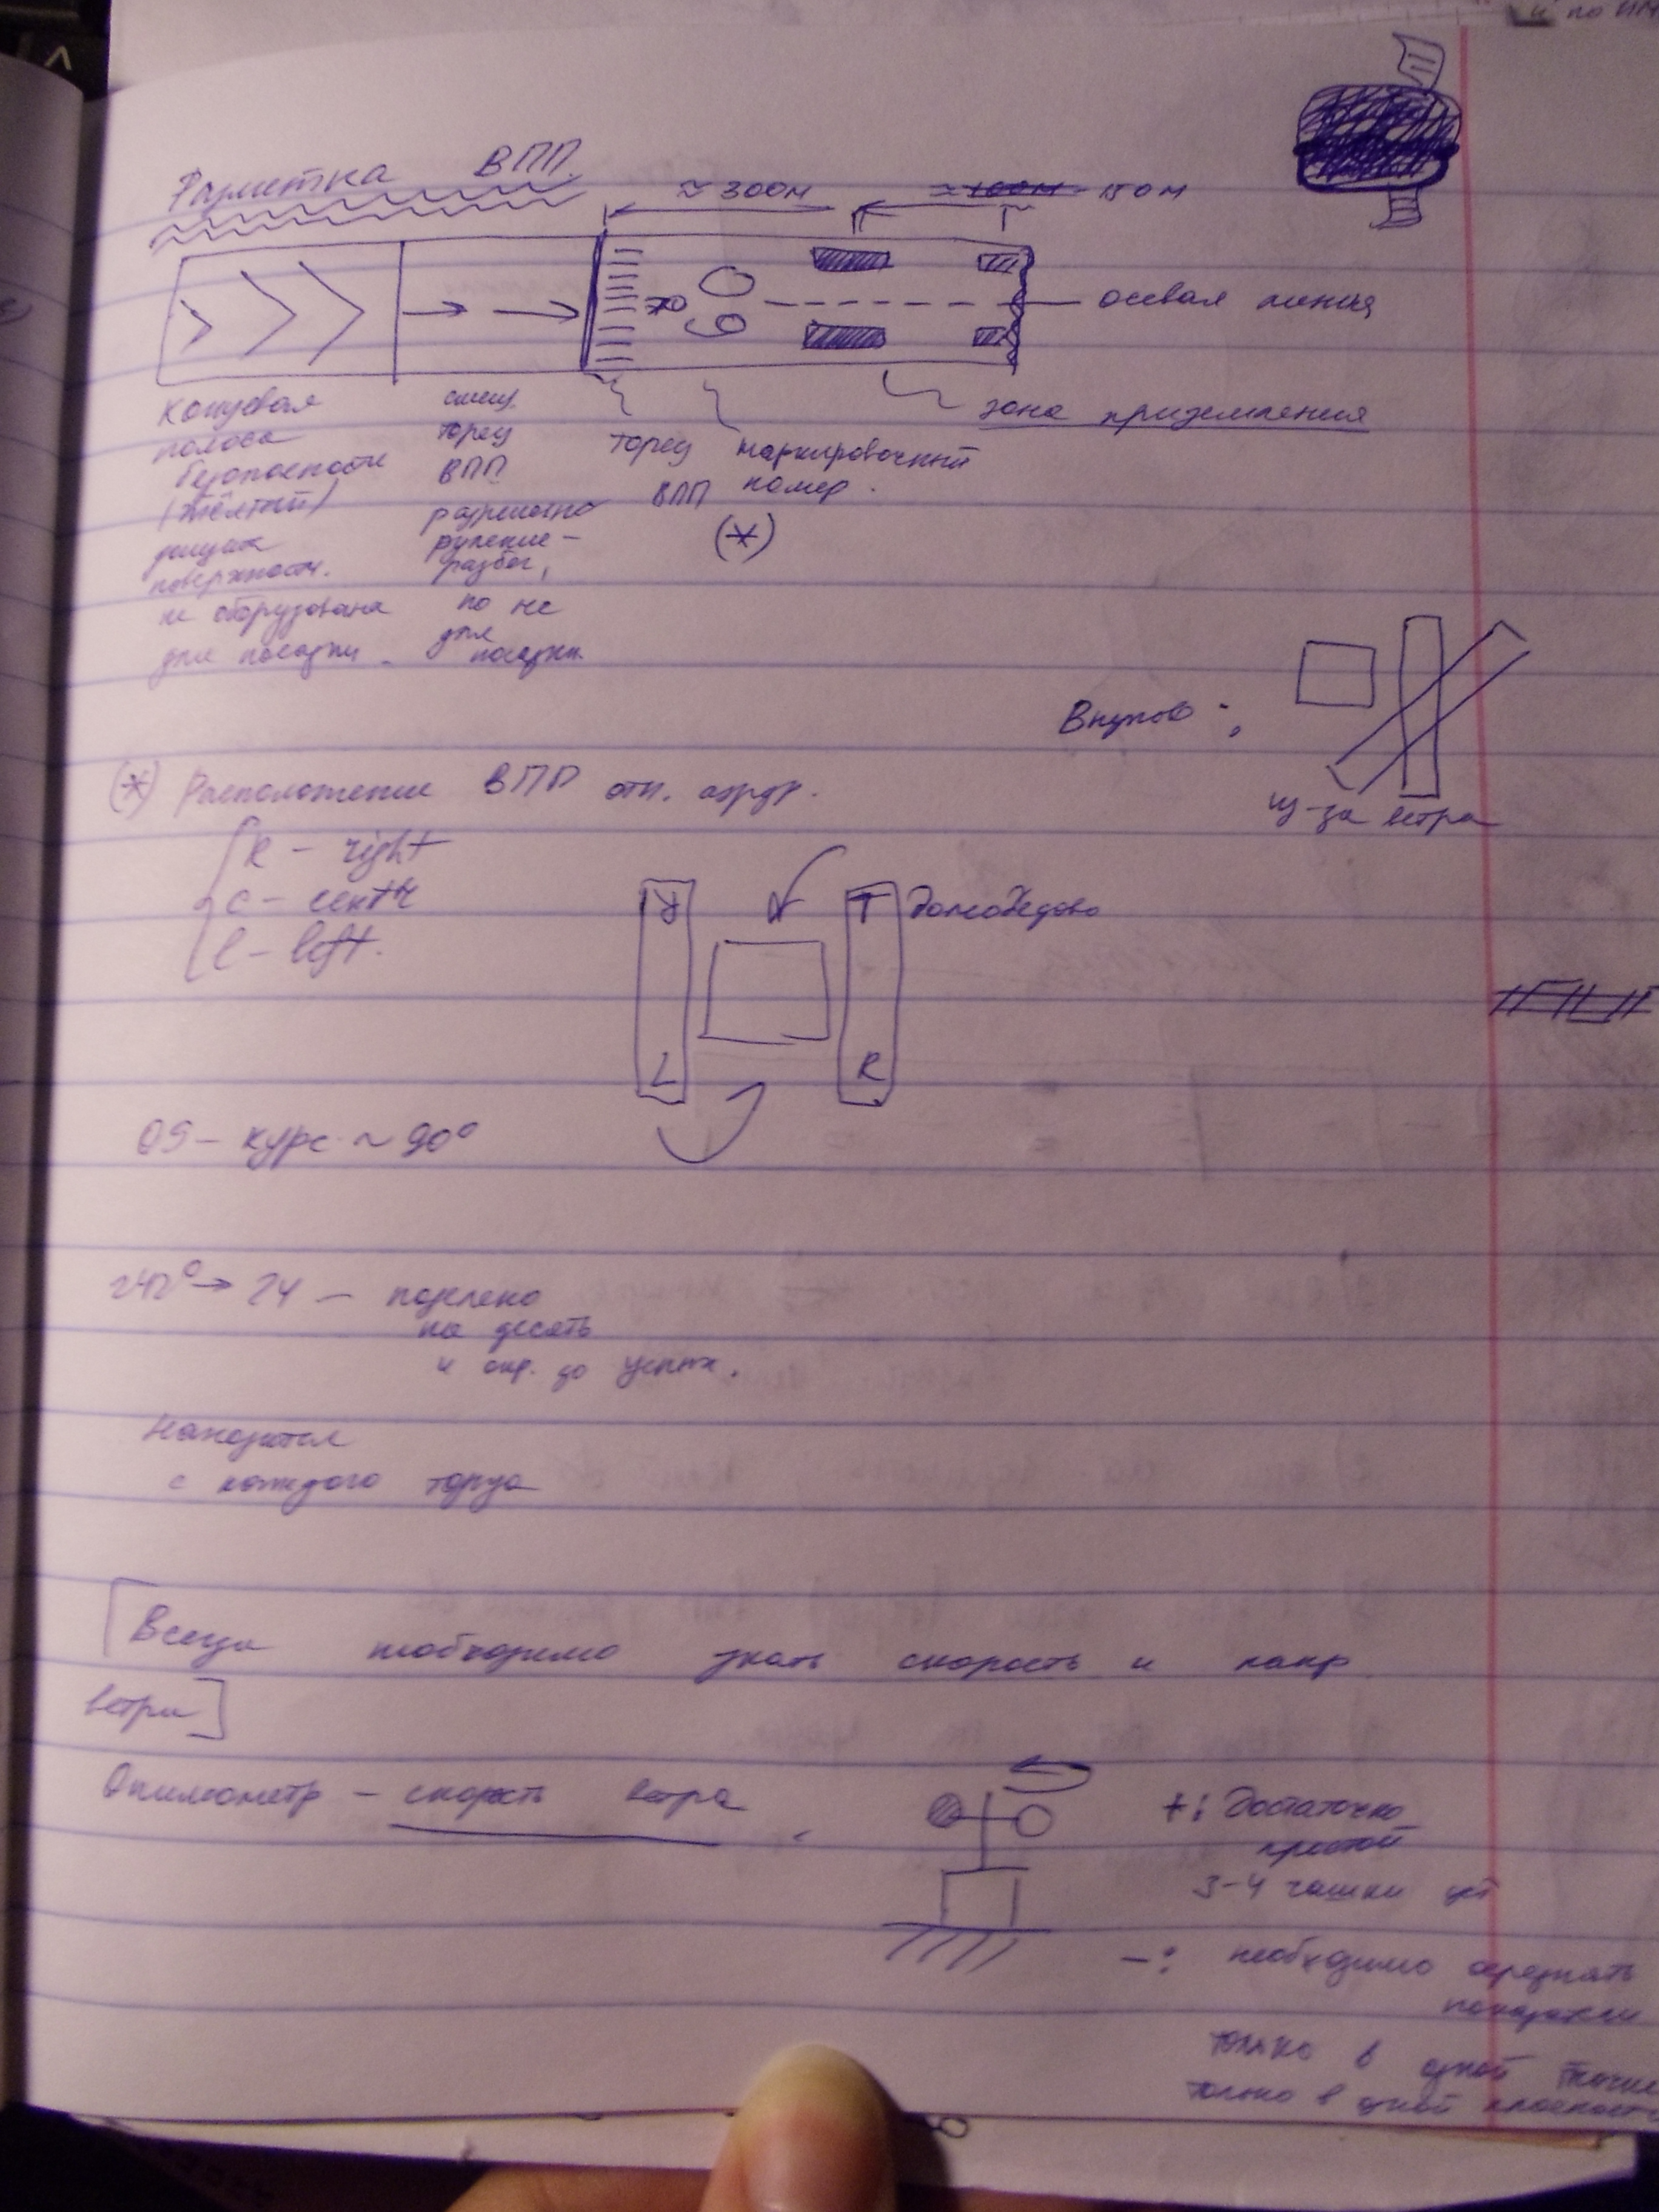 Разметка ВПП.
≈ 300м ≈ 100м 150м
09
осевая линия
зона приземления
концевая
полоса
безопасности
(жёлтый)
поверхности.
не оборудована
для посадки.
смещ.
торец
ВПП
разрешено
руление -
разбег,
но не
для
посадки.
торец
ВПП
маркировочный
номер.
(*)
Внуково:
из-за ветра
(*) Расположение ВПП отн. аэрдр.
R - right
C - centr
L - left.
Домодедово
L R
09 - курс ~ 90°
242° → 24 - поделено
на десять
и окр. до
Находится
с каждого торца
[Всегда необходимо знать скорость и напр
ветра]
Анемометр - скорость ветра
+: Достаточно
простой
3-4 чашки
-: необходимо
только в одной точке
только в одной плоскости